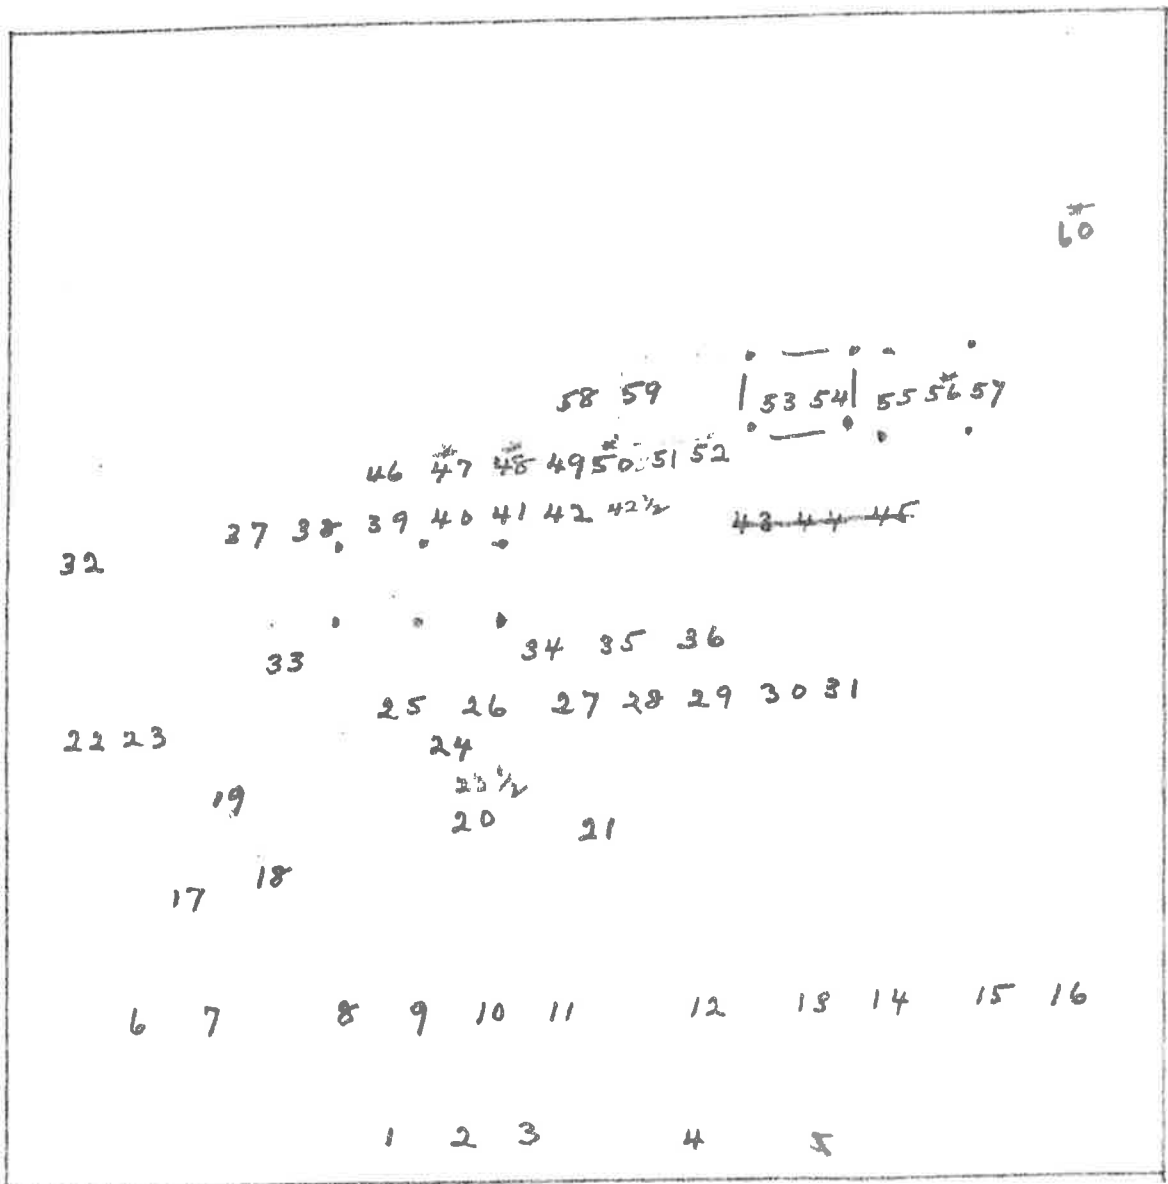 60
58 59 53 54 55 56 57
46 47 48 49 50 51 52
37 38 39 40 41 42 42½ 43 44 45
32
33 34 35 36
25 26 27 28 29 30 31
22 23 24
19 23½
20 21
17 18
6 7 8 9 10 11 12 13 14 15 16
1 2 3 4 5